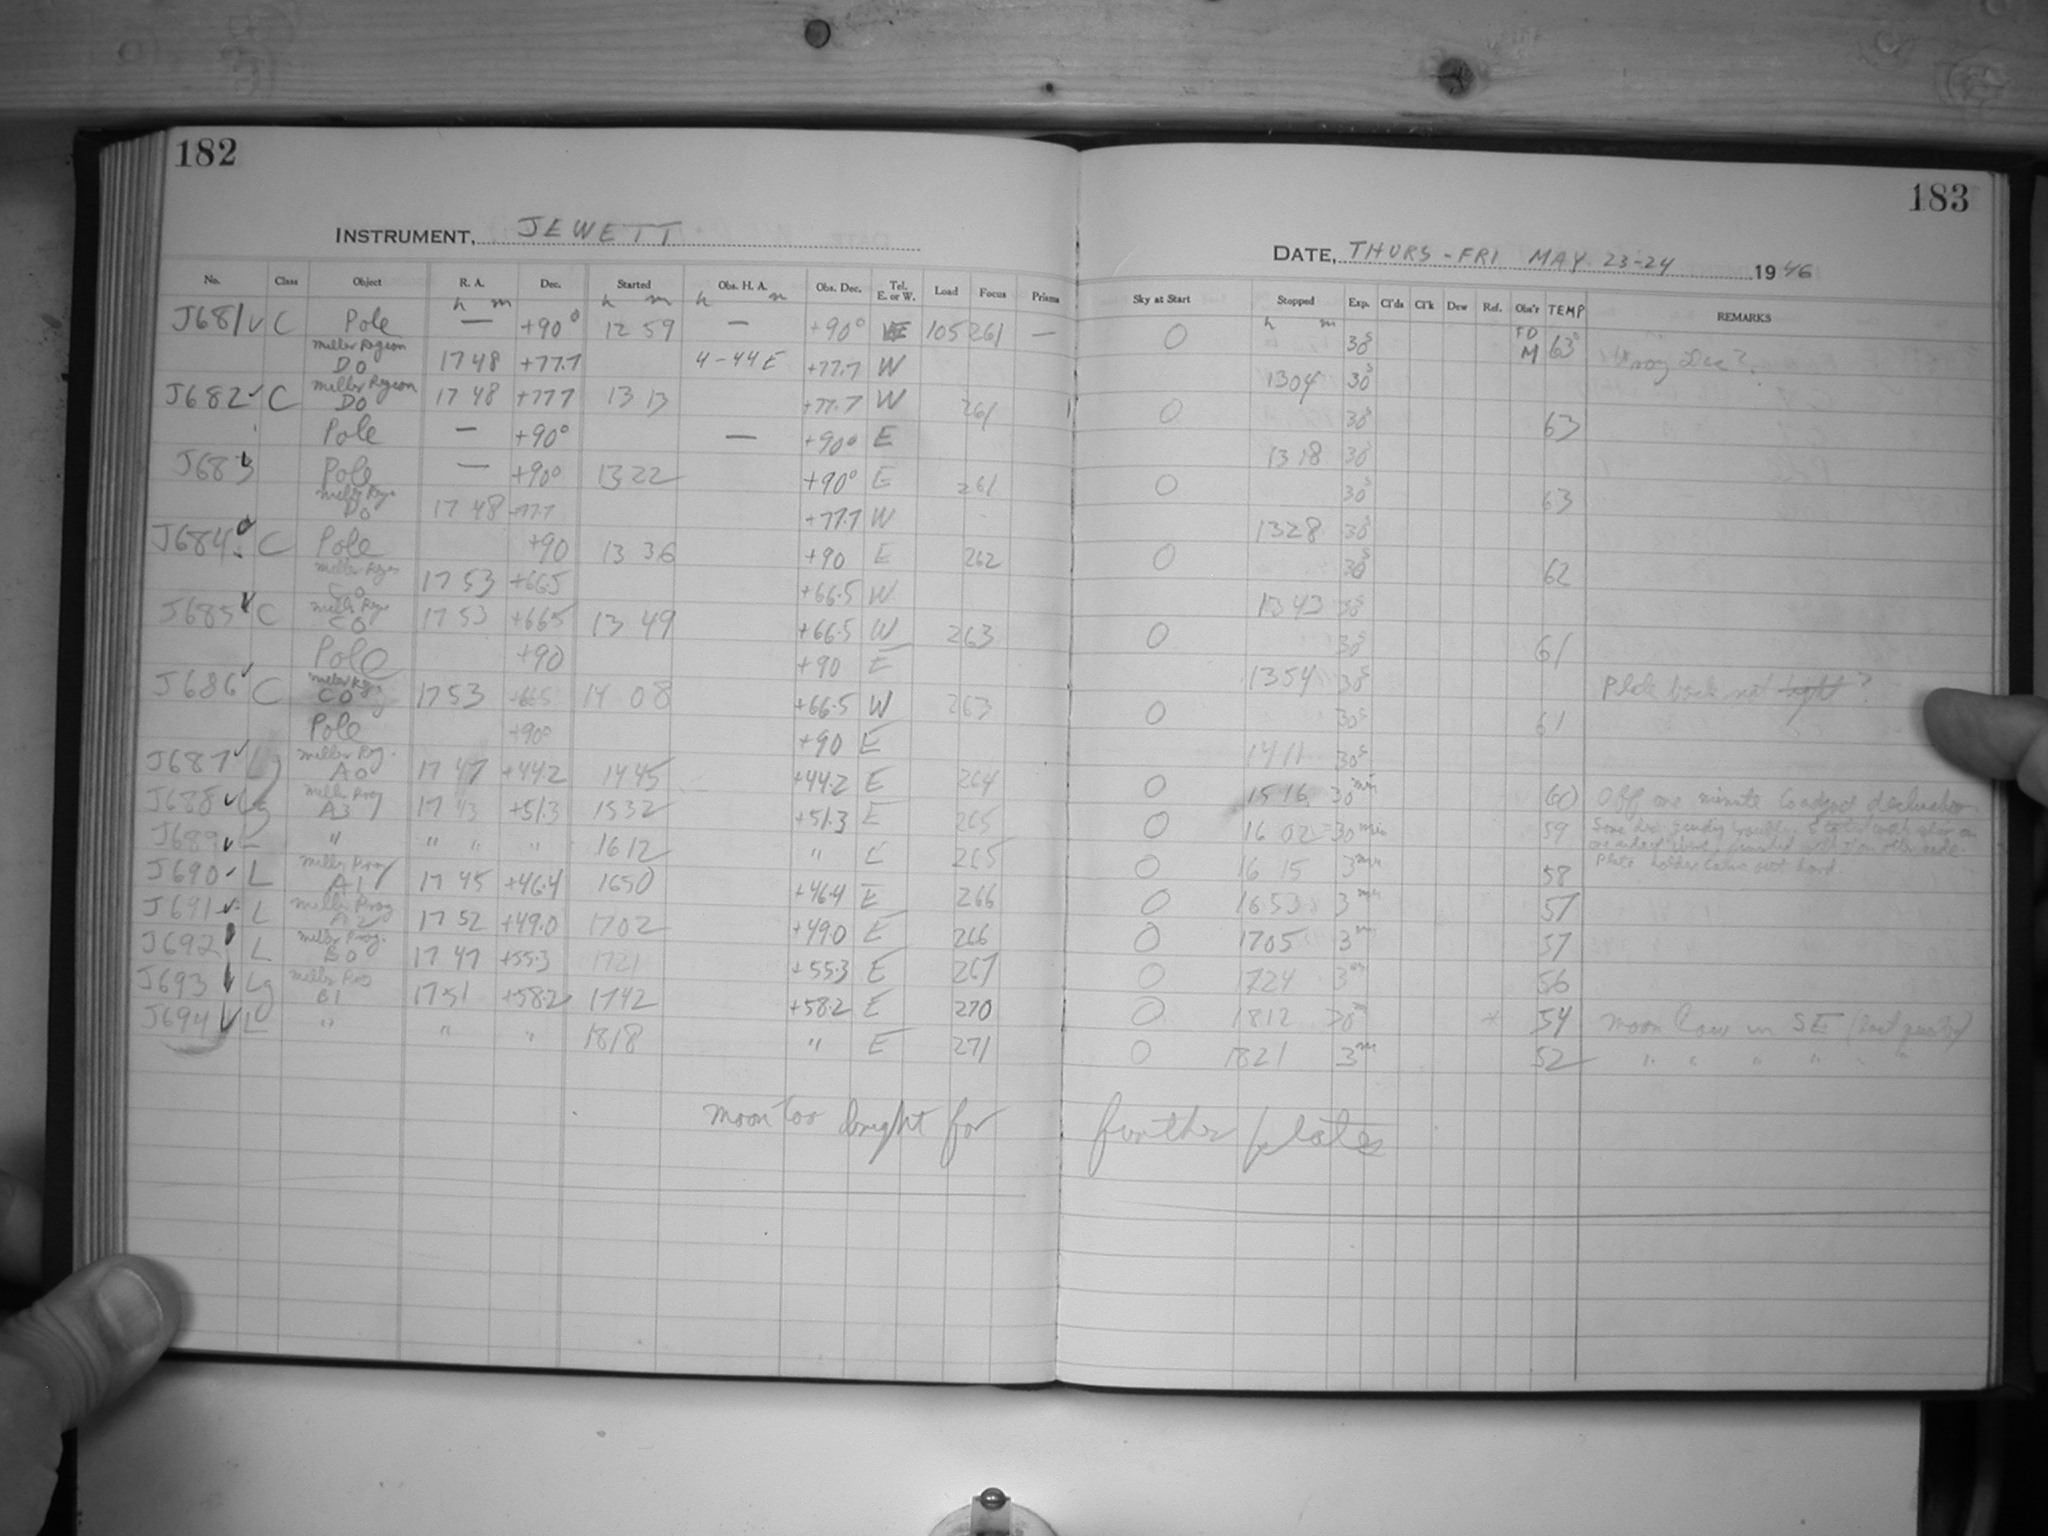 182
183
INSTRUMENT, JEWETT
DATE, THURS - FRI MAY 23-24 1946
No. Class Object R. A. Dec. Started Obs. H. A. Obs. Dec. Tel. E. or W. Load Focus Prisms Sky at Start Stopped Exp. Cl'ds Cl'k Dew Ref. Obs'r TEMP REMARKS
h m h m h m h m
J681 C Pole — +90° 12 59 — +90° E 105 261 — 0 30s TD M 63°
Miller Region D0 17 48 +77.7 4-44E +77.7 W 1304 30s Wrong Dec?
J682 C Miller Region D0 17 48 +77.7 13 13 +77.7 W 261 0 30s 63
Pole — +90° — +90° E 1318 30s
J683 Pole — +90° 13 22 +90° E 261 0 30s 63
Miller Reg. D0 17 48 +77.7 +77.7 W 1328 30s
J684 C Pole +90 13 36 +90 E 262 0 30s 62
Miller Region C0 17 53 +66.5 +66.5 W 1343 30s
J685 C Miller Reg. C0 17 53 +66.5 13 49 +66.5 W 263 0 30s 61
Pole +90 +90 E 1354 30s
J686 C Miller Reg. C0 17 53 +66.5 14 08 +66.5 W 263 0 30s 61 Plate back not tight?
Pole +90° +90 E 1411 30s
J687 Lg Miller Reg. A0 17 47 +44.2 1445 +44.2 E 264 0 1516 30min 60 Off one minute to adjust declination
J688 Lg Miller Prog A3 17 43 +51.3 1532 +51.3 E 265 0 16 02 30min 59
J689 L " " " " 1612 " E 265 0 16 15 3min 58 Plate holder came out hard.
J690 L Miller Prog A1 17 45 +46.4 1650 +46.4 E 266 0 1653 3min 57
J691 L Miller Prog A2 17 52 +49.0 1702 +49.0 E 266 0 1705 3m 57
J692 L Miller Prog. B0 17 47 +55.3 1721 +55.3 E 267 0 1724 3m 56
J693 Lg Miller Pro B1 17 51 +58.2 1742 +58.2 E 270 0 1812 30m * 54 Moon low in SE (last quarter)
J694 L " " " 1818 " E 271 0 1821 3m 52 " " " " " "
Moon too bright for further plates